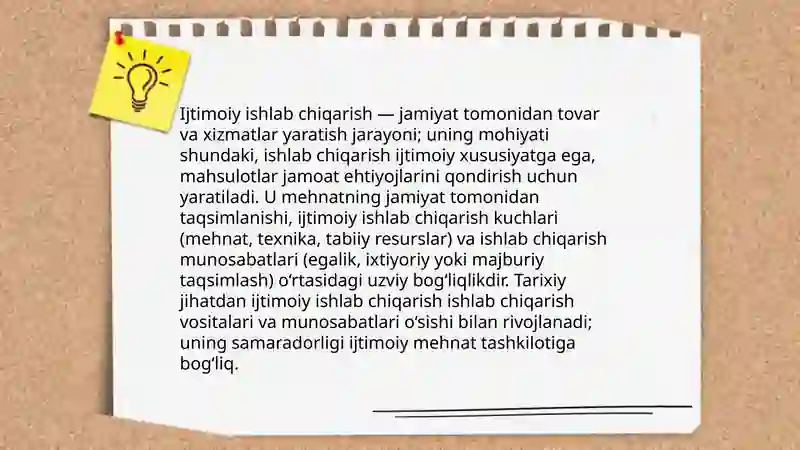 Ijtimoiy ishlab chiqarish — jamiyat tomonidan tovar
va xizmatlar yaratish jarayoni; uning mohiyati
shundaki, ishlab chiqarish ijtimoiy xususiyatga ega,
mahsulotlar jamoat ehtiyojlarini qondirish uchun
yaratiladi. U mehnatning jamiyat tomonidan
taqsimlanishi, ijtimoiy ishlab chiqarish kuchlari
(mehnat, texnika, tabiiy resurslar) va ishlab chiqarish
munosabatlari (egalik, ixtiyoriy yoki majburiy
taqsimlash) o‘rtasidagi uzviy bog‘liqlikdir. Tarixiy
jihatdan ijtimoiy ishlab chiqarish ishlab chiqarish
vositalari va munosabatlari o‘sishi bilan rivojlanadi;
uning samaradorligi ijtimoiy mehnat tashkilotiga
bog‘liq.